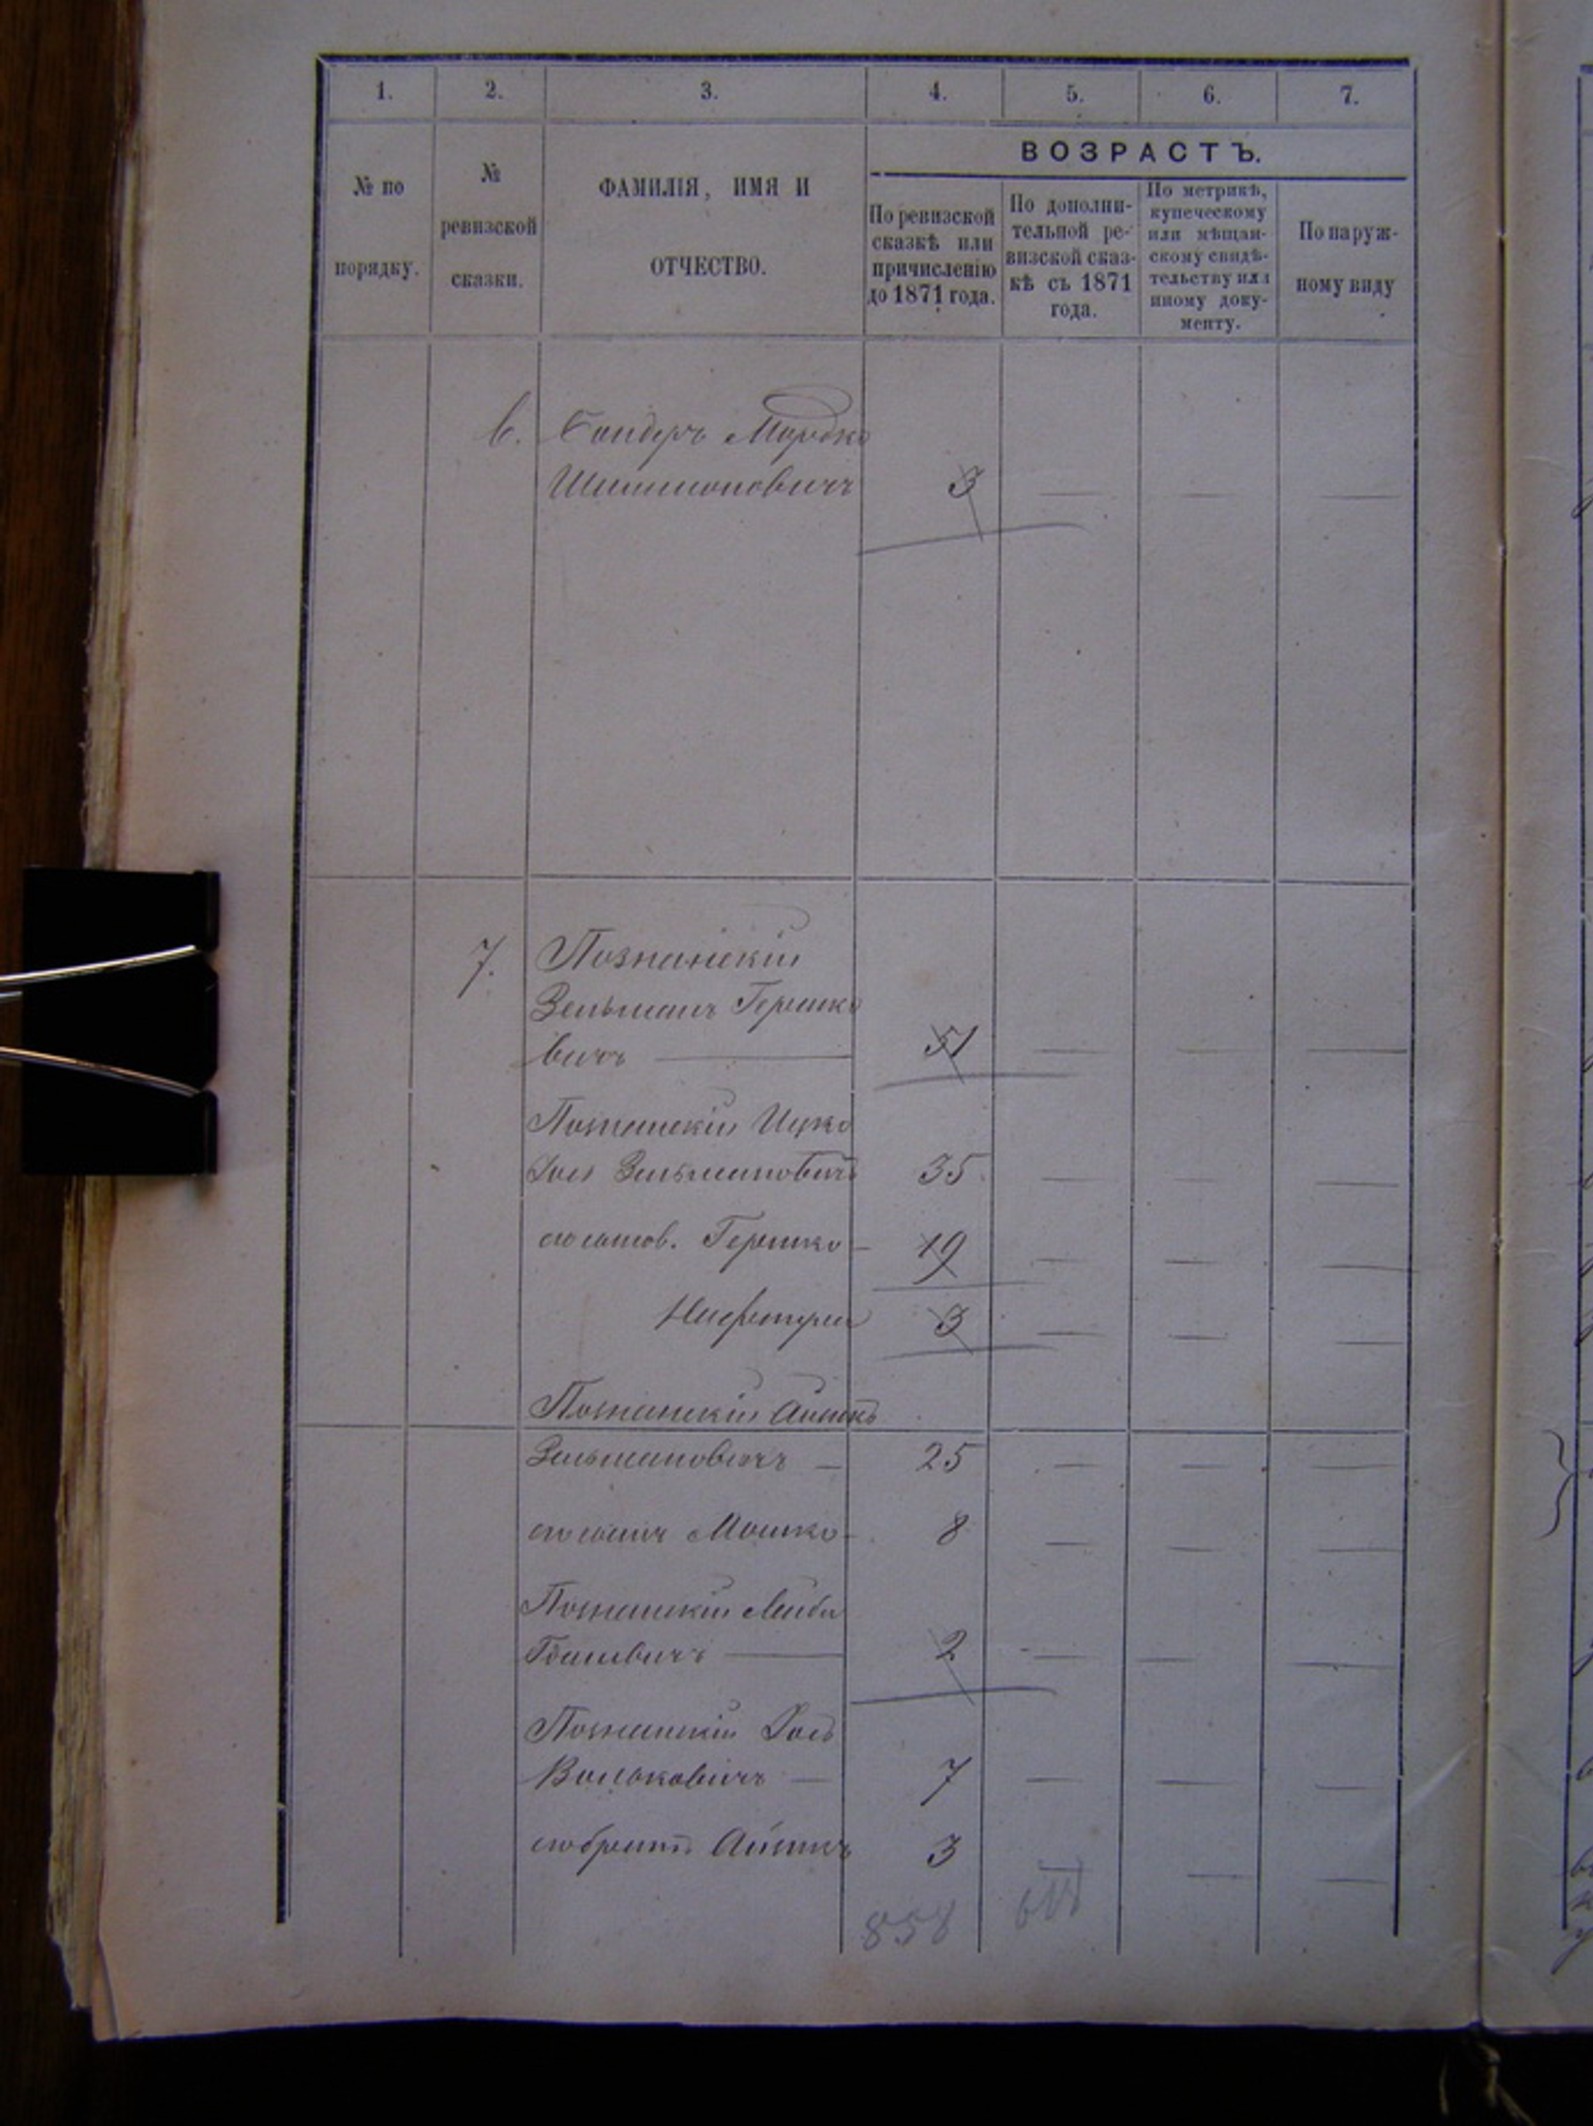 1. 2. 3. 4. 5. 6. 7.
№ по порядку.
№ ревизской сказки.
ФАМИЛІЯ, ИМЯ И
ОТЧЕСТВО.
ВОЗРАСТЪ.
По ревизской
сказкѣ или
причисленію
до 1871 года.
По дополни-
тельной ре-
визской сказ-
кѣ съ 1871
года.
По метрикѣ,
купеческому
или мѣщан-
скому свидѣ-
тельству или
иному доку-
менту.
По наруж-
ному виду
6. Мордко
Шимоновичъ 3 — — —
7. Познанскій
Зельманъ Гершко
вичъ — 51 — — —
Познанскій Ицко
Зельмановичъ 35 — — —
Гершко — 19 — — —
3 — — —
Познанскій
Зельмановичъ — 25 — — —
Мошко — 8 — — —
Познанскій Лейба
2 — — —
Познанскій
Вольковичъ — 7 — — —
3 — — —
858